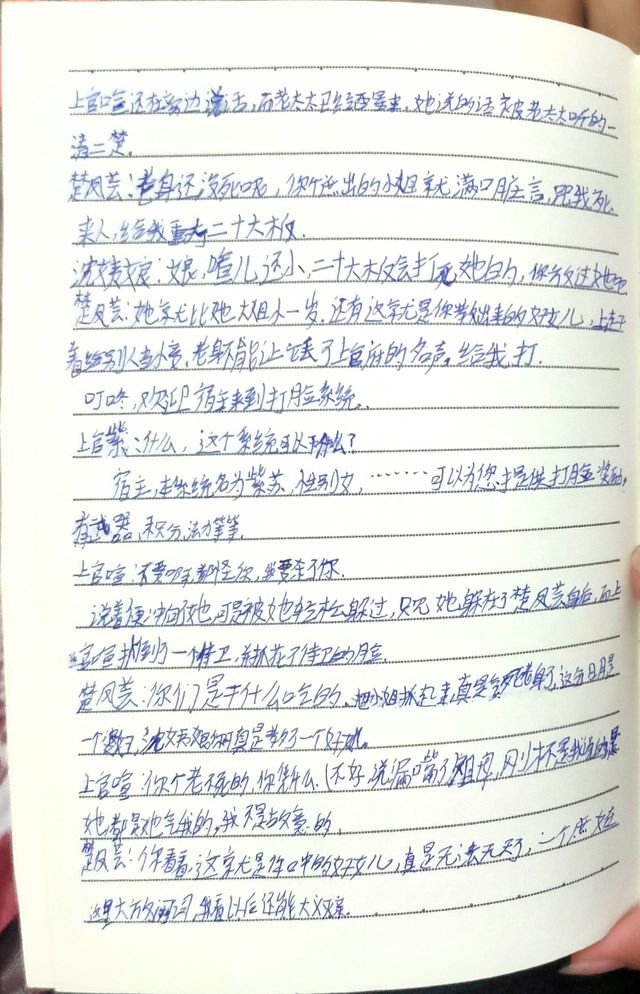 上官喧还在旁边说话,而老太太已经醒来。她说的话被老太太听的一
清二楚。
楚凤芸:老身还没死呢,你个庶出的小姐就满口胡言,咒我死,
来人,给我重大二十大板。
沈姨娘:娘,喧儿还小,二十大板会打死她的,你放过她吧
楚凤芸:她就比她大姐小一岁,还有这就是你教出来的好女儿,上赶
着给别人当小妾,老身不能让丢了上官府的名声。给我打.
叮咚,欢迎宿主来到打脸系统.
上官紫:什么,这个系统可以干什么?
宿主,本系统名为紫苏,性别女,……可以为您提供打脸奖励,
有武器,积分,法力等等.
上官喧:不要 都怪你,我要杀了你.
说着便冲向她,可是被她轻松躲过,只见她躲在了楚凤芸身后,而上
官喧抓到了一个侍卫,并抓花了侍卫的脸.
楚凤芸:你们是干什么吃的,把小姐抓起来,真是气死老身了,这分明是
一个 ,沈 娘啊真是教了一个好
上官喧:你个老不死的,你凭什么(不好,说漏嘴了 ,刚才不是我说的是
她,都是她气我的,我不是故意的,
楚凤芸:你看看,这就是你口中的好女儿,真是无法无天了,一个庶女在
这里大放厥词,我看以后还能大义灭亲.